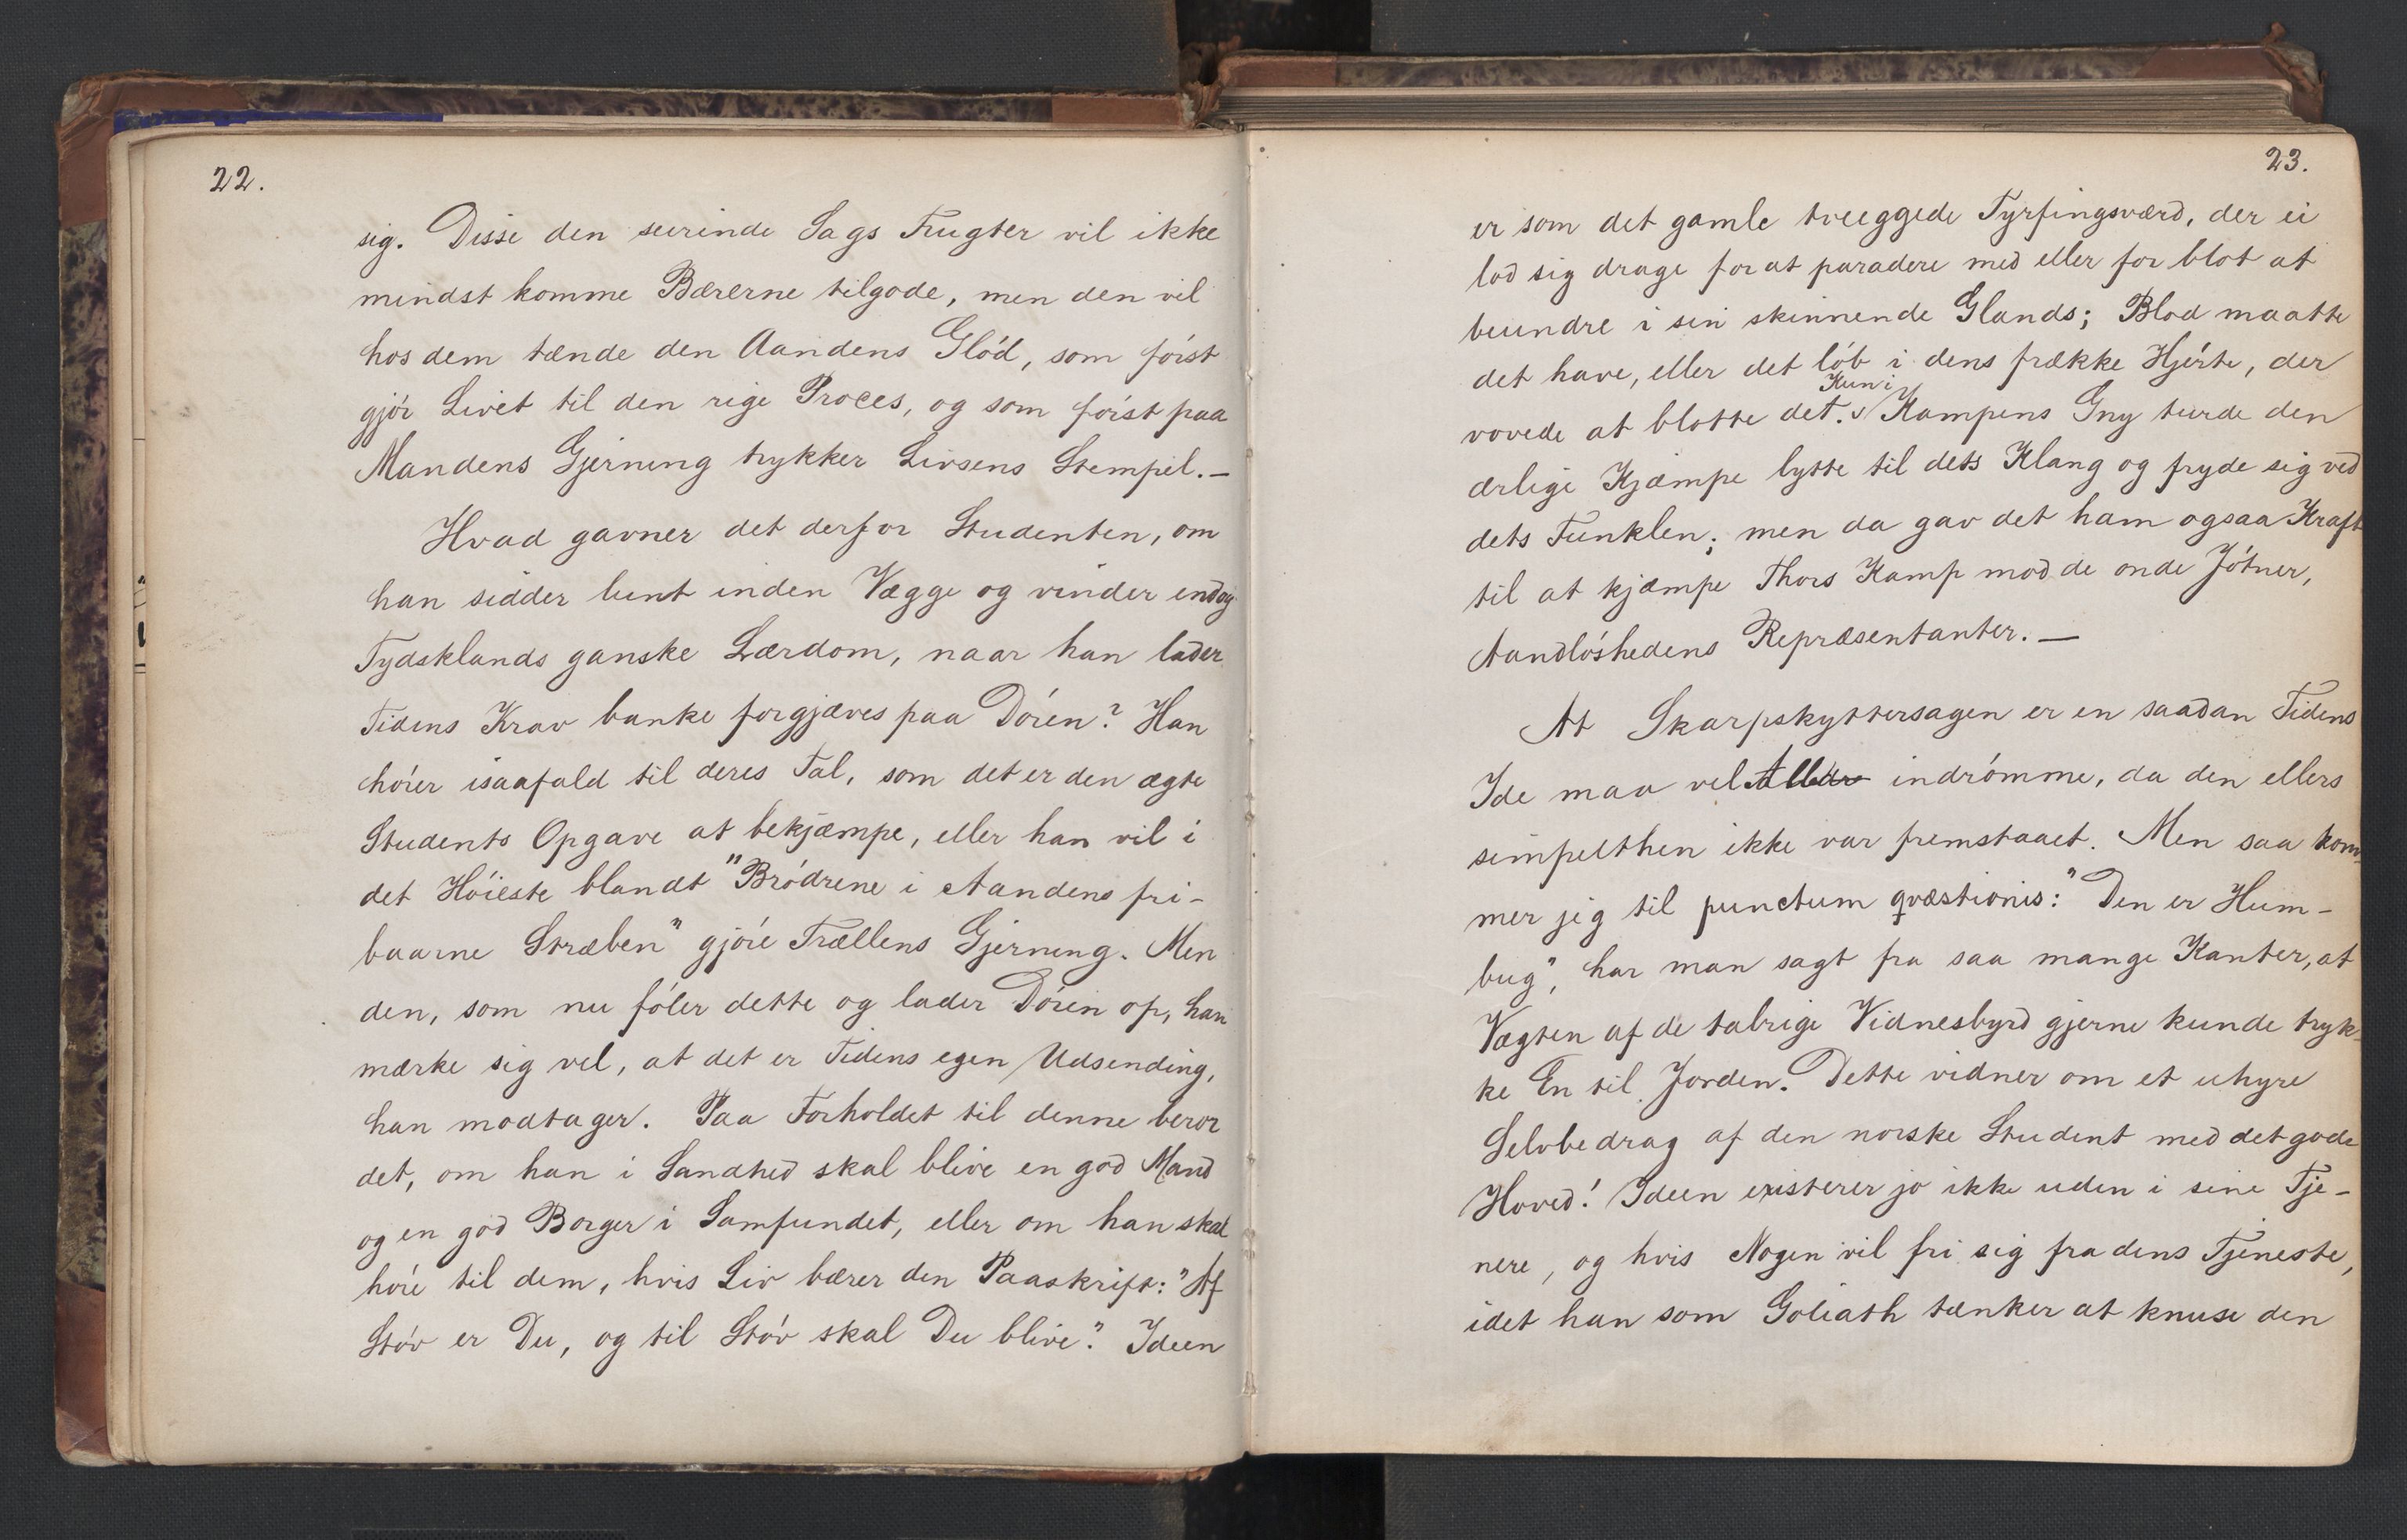 22.
sig. Disse den seirende Sags Frugter vil ikke
mindst komme Bærerne tilgode, men den vil
hos dem tænde den Aandens Glód, som fórst
gjór Livet til den rige Proces, og som fórst paa
Mandens Gjerning trykker Livsens Stempel.—
Hvad gavner det derfor Studenten, om
han sidder lunt inden Vægge og vinder endog
Tydsklands ganske Lærdom, naar han lader
Tidens Krav banke forgjæves paa Dóren? Han
hórer isaafald til deres Tal, som det er den ægte
Students Opgave at bekjæmpe, eller han vil i
det Hóieste blandt "Bródrene i Aandens fri-
baarne Stræben" gjóre Trællens Gjerning. Men
den, som nu fóler dette og lader Dóren op, han
mærke sig vel, at det er Tidens egen Udsending,
han modtager. Paa Forholdet til denne beror
det, om han i Sandhed skal blive en god Mand
og en god Borger i Samfundet, eller om han skal
hóre til dem, hvis Liv bærer den Paaskrift: "Af
Stóv er Du, og til Stóv skal Du blive". Ideen
23.
er som det gamle tveeggede Tyrfingsværd, der ei
lod sig drage for at paradere med eller for blot at
beundre i sin skinnende Glands; Blod maatte
det have, eller det lób i dens frække Hjerte, der
Kun i
vovede at blotte det. Kampens Gny turde den
ærlige Kjæmpe lytte til dets Klang og fryde sig ved
dets Funklen; men da gav det ham ogsaa Kraft
til at kjæmpe Thors Kamp mod de onde Jótner,
Aandlóshedens Repræsentanter.—
At Skarpskyttersagen er en saadan Tidens
Ide maa vel indrómme, da den ellers
simpelthen ikke var fremstaaet. Men saa kom-
mer jeg til punctum qvæstionis: "Den er Hum-
bug", har man sagt fra saa mange Kanter, at
Vægten af de talrige Vidnesbyrd gjerne kunde tryk-
ke En til Jorden. Dette vidner om et uhyre
Selvbedrag af den norske Student med det gode
Hoved! Ideen existerer jo ikke uden i sine Tje-
nere, og hvis Nogen vil fri sig fra dens Tjeneste,
idet han som Goliath tænker at knuse den